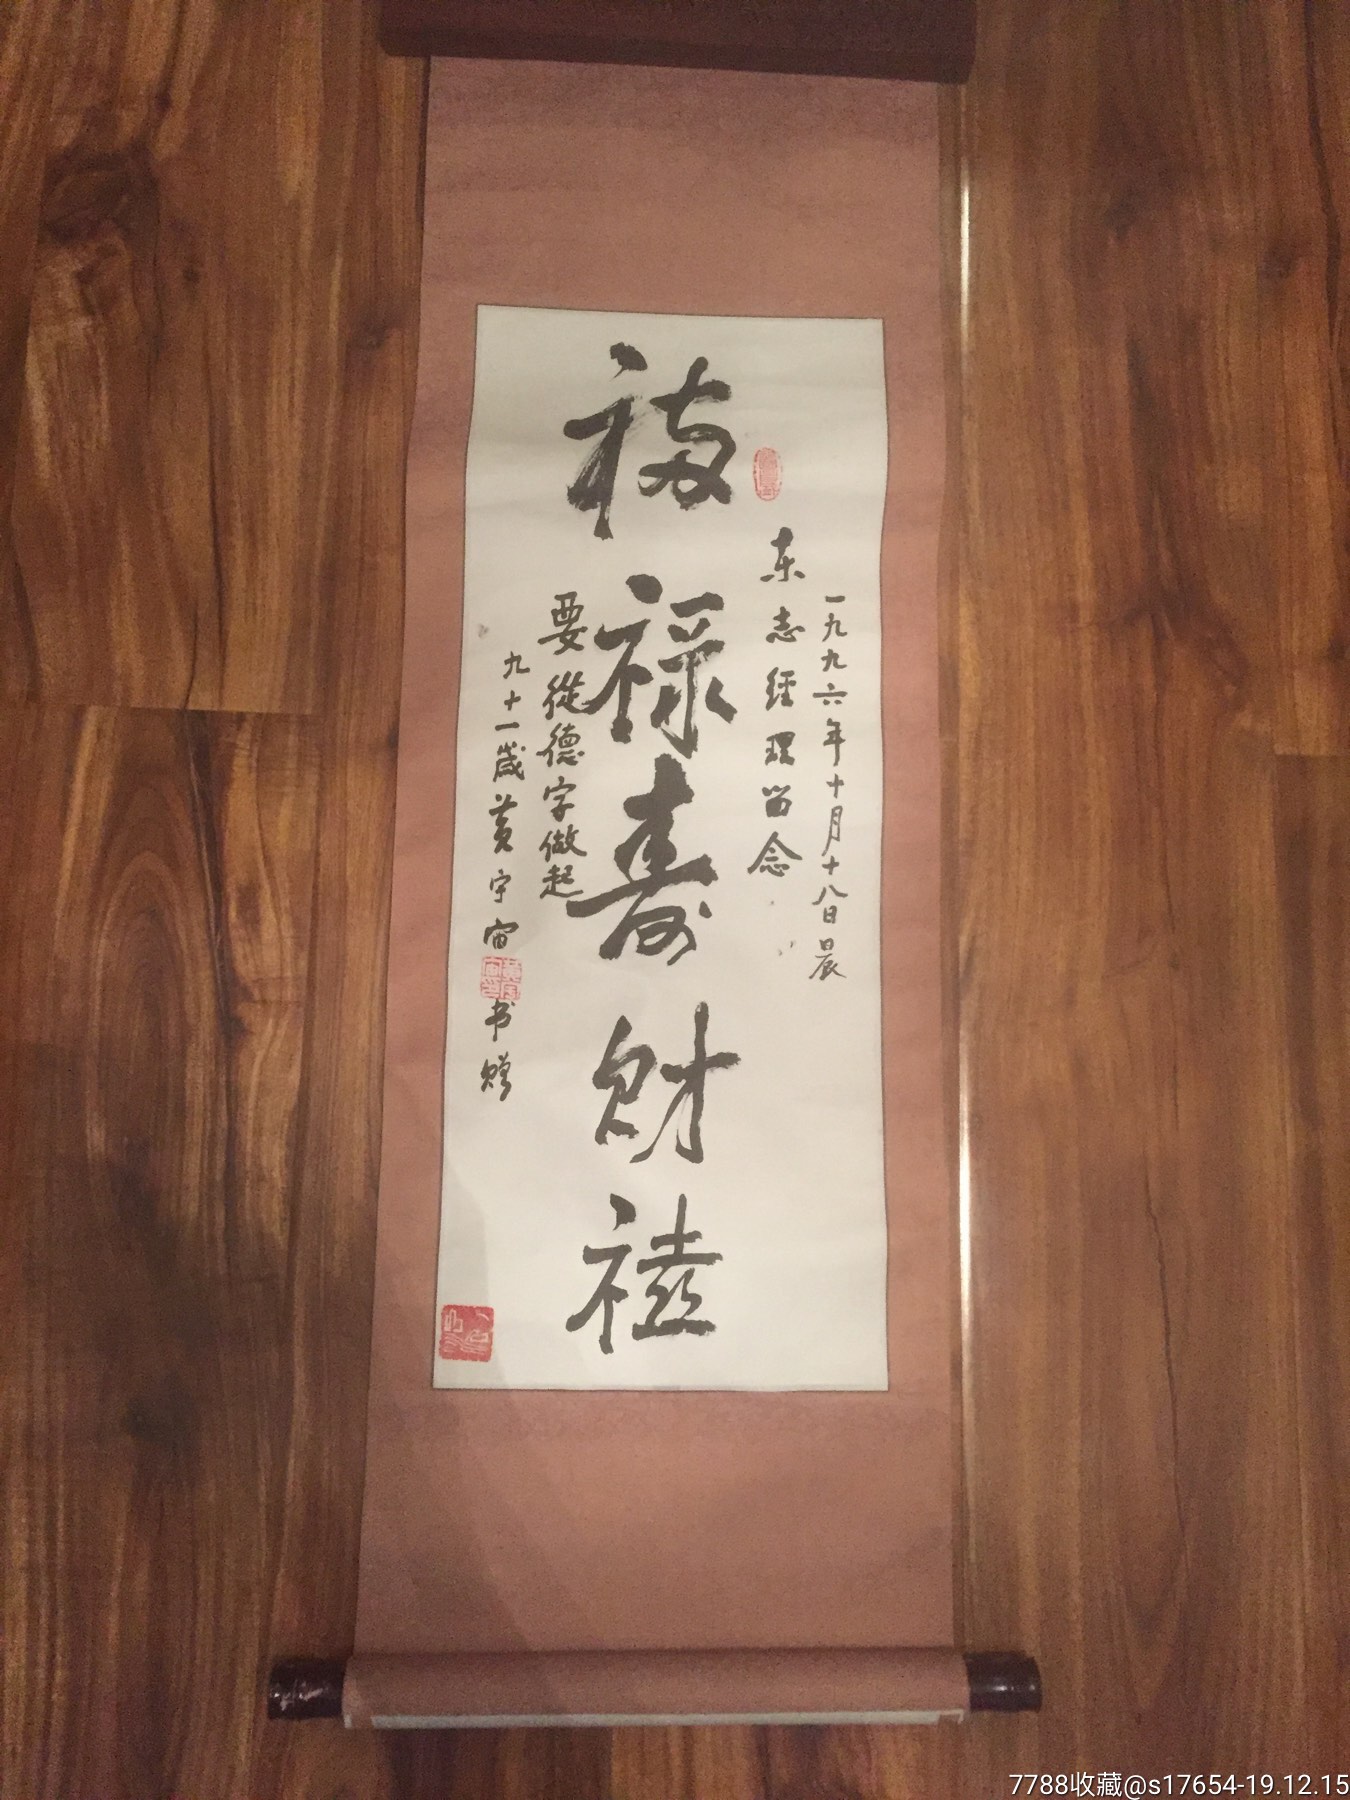 一九九六年十月十八日晨
东志经理留念
福禄寿财禧
要從德字做起
九十一歲黄宇宙书赠
黄宇宙印
7788收藏@s17654-19.12.15